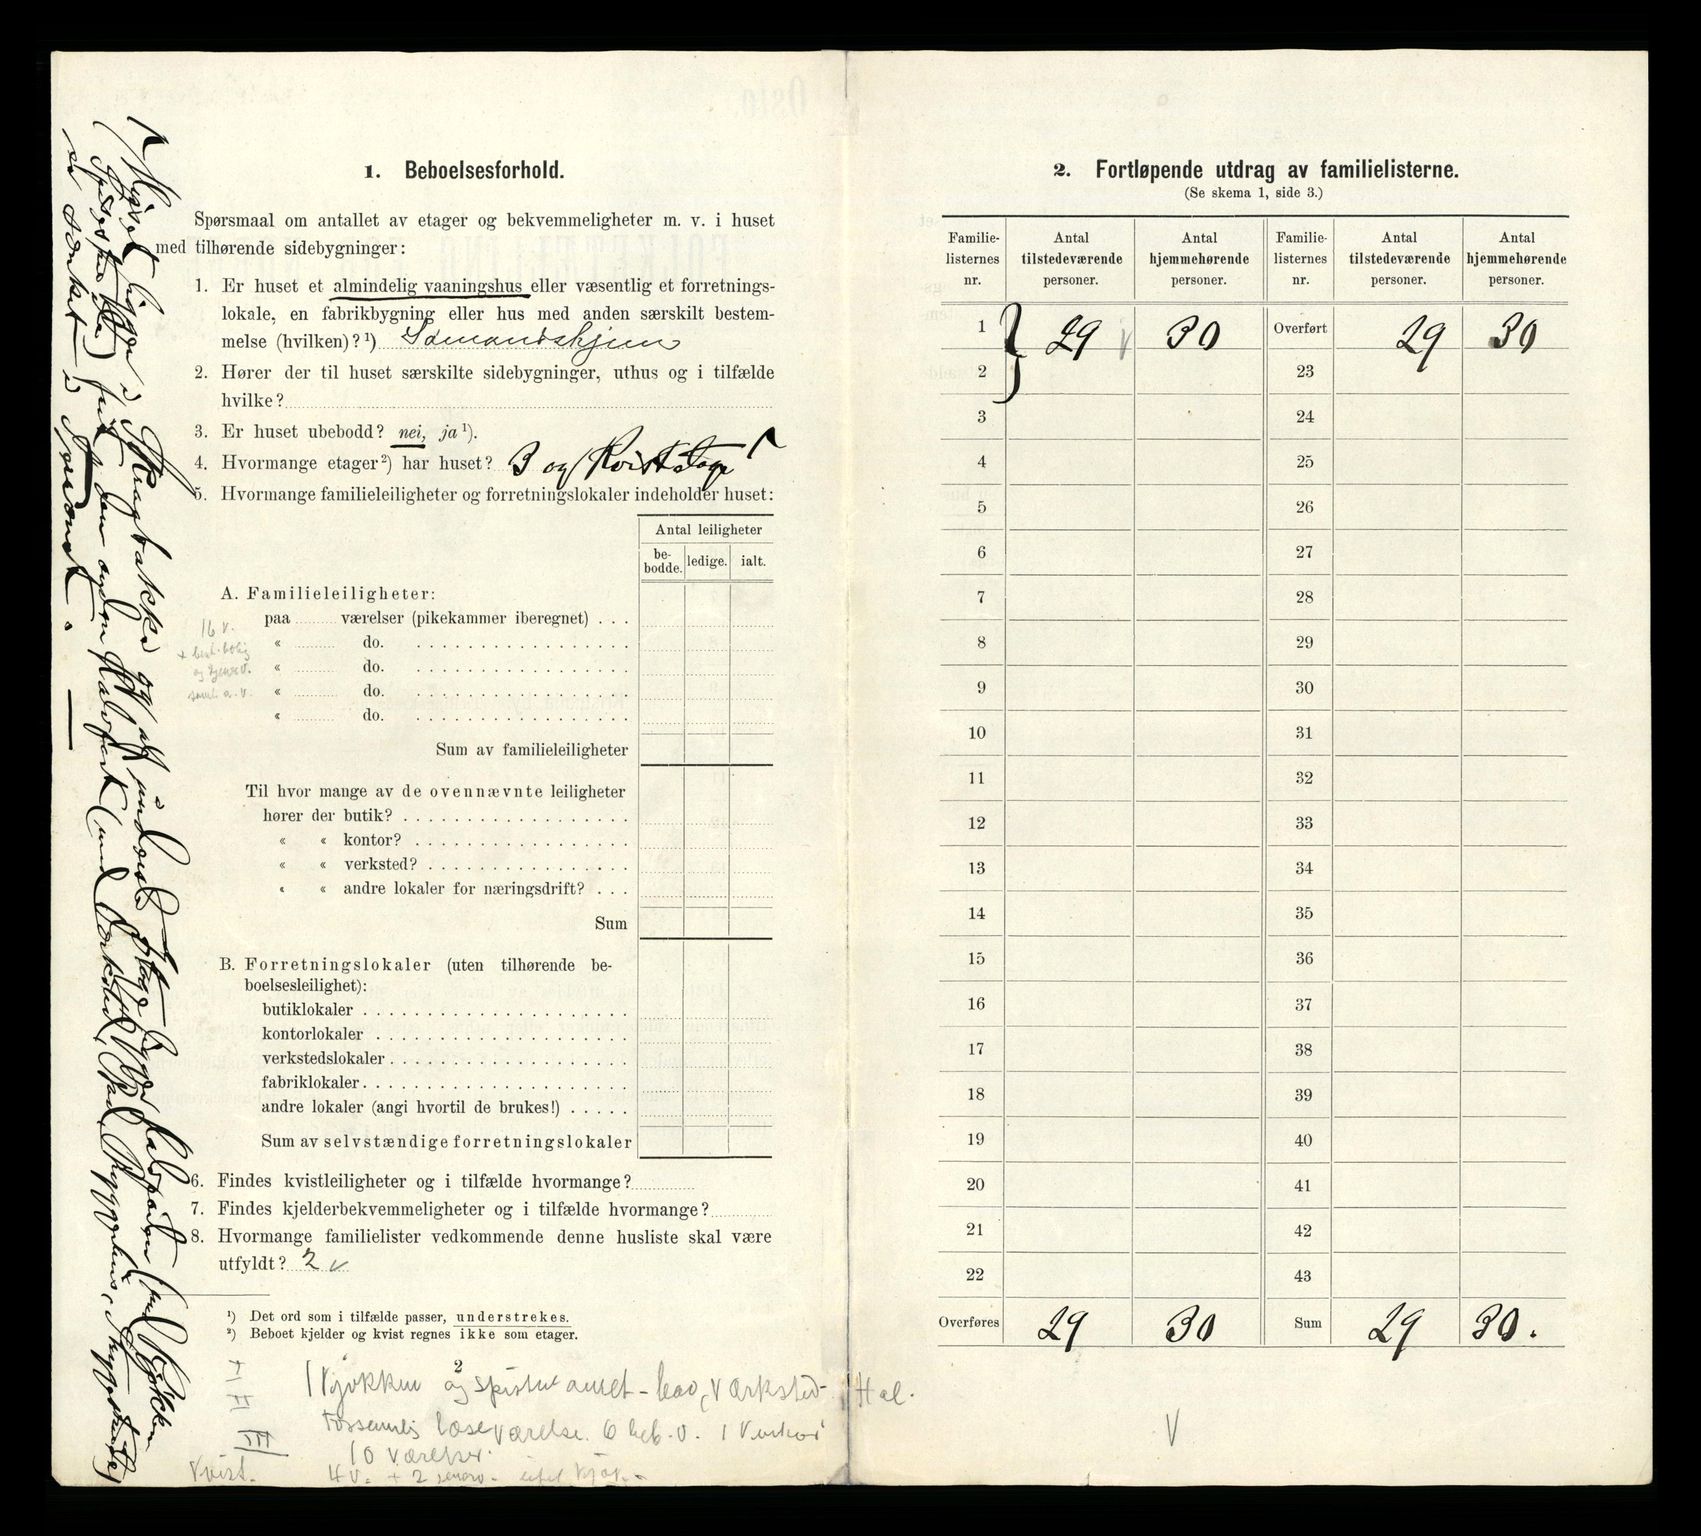 1. Beboelsesforhold.
Spørsmaal om antallet av etager og bekvemmeligheter m. v. i huset
med tilhørende sidebygninger:
1. Er huset et almindelig vaaningshus eller væsentlig et forretnings-
lokale, en fabrikbygning eller hus med anden særskilt bestem-
melse (hvilken)?¹) Sømandshjem
2. Hører der til huset særskilte sidebygninger, uthus og i tilfælde
hvilke?
3. Er huset ubebodd? nei, ja¹).
4. Hvormange etager²) har huset? 3 og Kvistetage
5. Hvormange familieleiligheter og forretningslokaler indeholder huset:
Antal leiligheter
be-
bodde. ledige. ialt.
A. Familieleiligheter:
paa værelser (pikekammer iberegnet) . . .
« do.
« do.
« do.
« do.
16 v.
Sum av familieleiligheter
Til hvor mange av de ovennævnte leiligheter
hører der butik?
« « kontor?
« « verksted?
« « andre lokaler for næringsdrift? . . .
Sum
B. Forretningslokaler (uten tilhørende be-
boelsesleilighet):
butiklokaler
kontorlokaler
verkstedslokaler
fabriklokaler
andre lokaler (angi hvortil de brukes!)
Sum av selvstændige forretningslokaler
6. Findes kvistleiligheter og i tilfælde hvormange?
7. Findes kjelderbekvemmeligheter og i tilfælde hvormange?
8. Hvormange familielister vedkommende denne husliste skal være
utfyldt? 2 v
¹) Det ord som i tilfælde passer, understrekes.
²) Beboet kjelder og kvist regnes ikke som etager.
2
I Kjøkken og - bad, Værksted - Hal.
II læseværelse. 6 beb. v. 1
III 10 værelser.
Kvist. 4 v. + 2
Huset ligger i og
den anden
2. Fortløpende utdrag av familielisterne.
(Se skema 1, side 3.)
Familie-
listernes
nr. Antal
tilstedeværende
personer. Antal
hjemmehørende
personer. Familie-
listernes
nr. Antal
tilstedeværende
personer. Antal
hjemmehørende
personer.
1 29 v 30 Overført 29 30
2 23
3 24
4 25
5 26
6 27
7 28
8 29
9 30
10 31
11 32
12 33
13 34
14 35
15 36
16 37
17 38
18 39
19 40
20 41
21 42
22 43
Overføres 29 30 Sum 29 30.
V